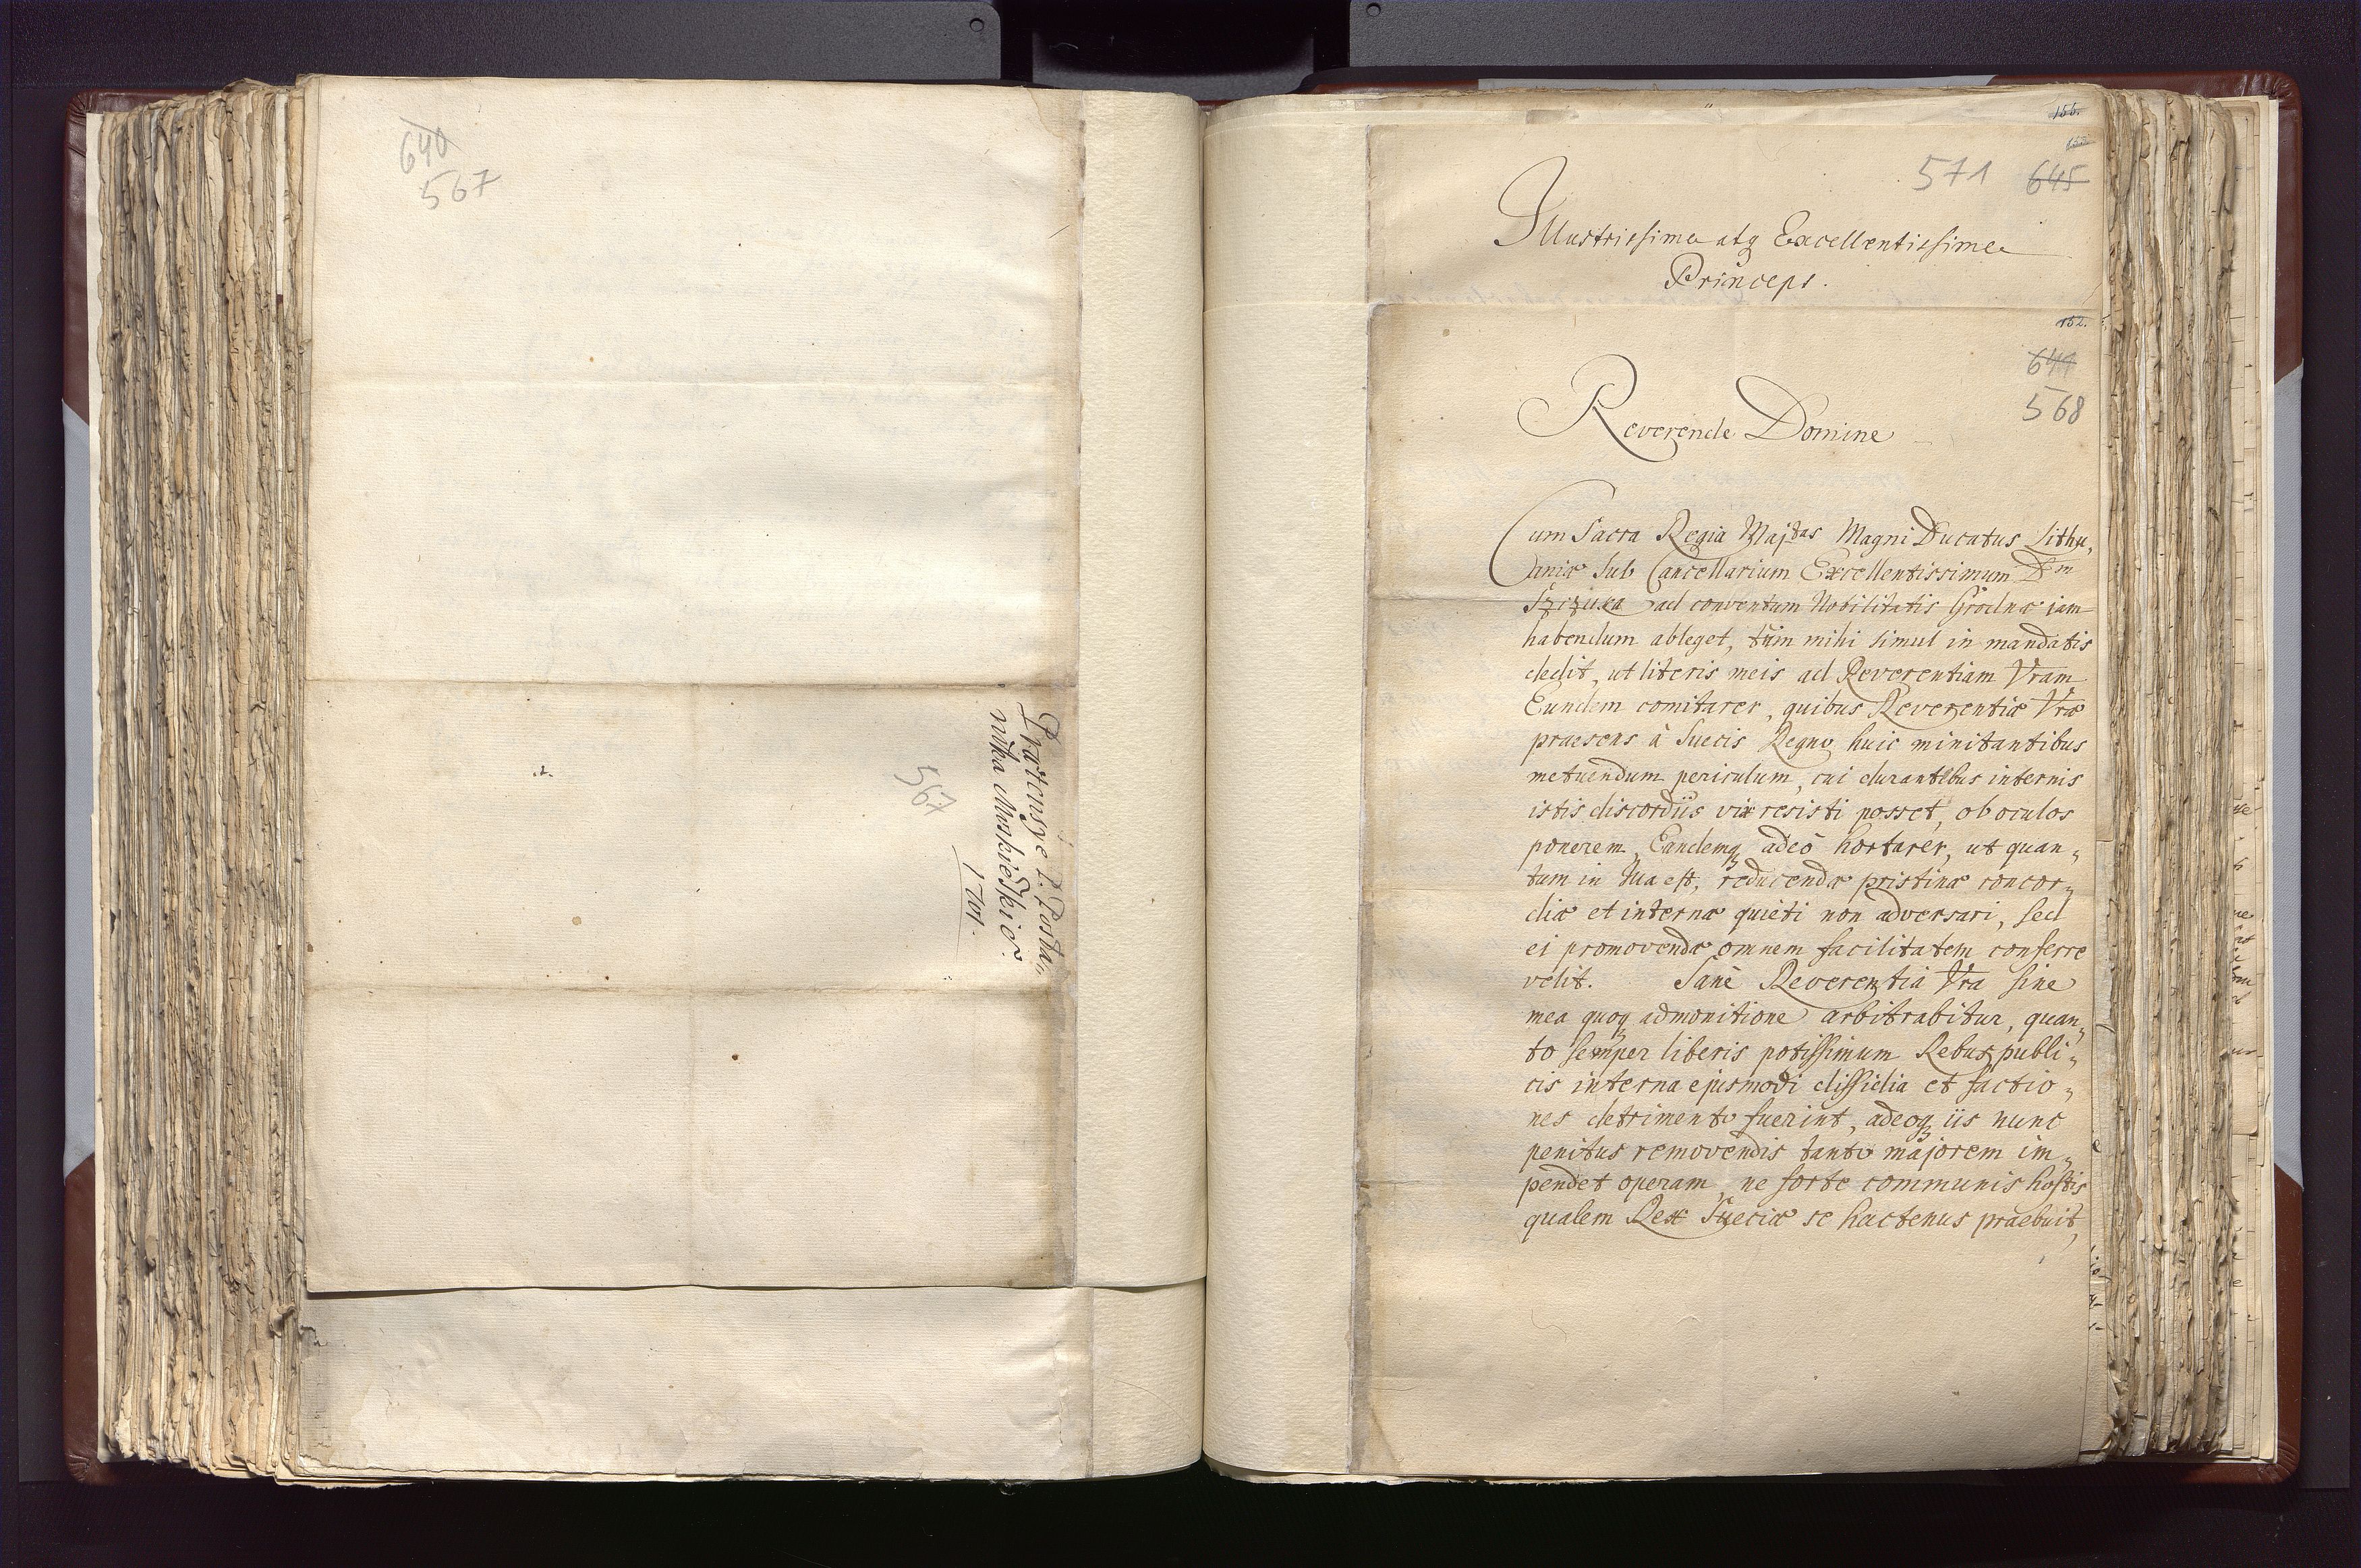 640
567
Prætensÿe P. Posła„
nnika Moskieskio°
1701.
567
155.
153.
571 645
Illustrissime atq Excellentissime
Princeps.
152.
644
568
Reverende Domine
Cum Sacra Regia Majtas Magni Ducatus Lithu„
aniæ Sub Cancellarium Excellentissimum Dm
Szczuka ad conventum Nobilitatis Grodnæ iam
habendum ableget, tùm mihi simul in mandatis
dedit, ut literis meis ad Reverentiam Vram
Eundem comitarer, quibus Reverentiæ Vræ
praesens à Suecis Regno huic minitantibus
metuendum periculum, cui durantibus internis
istis discordiis vix resisti posset, ob oculos
ponerem, Eandemq adeò hortarer, ut quan„
tum in Sua est, reducendæ pristinæ concor„
diæ et internæ quieti non adversari, sed
ei promovendæ omnem facilitatem conferre
velit. Sanè Reverentia Vra sine
mea quoq admonitione arbitrabitur, quan„
to semper liberis potissimum Rebus publi„
cis interna ejusmodi dissidia et factio„
nes detrimento fuerint, adeoq iis nunc
penitus removendis tanto majorem im„
pendet operam, ne forte communis hostis
qualem Rex Sueciæ se hactenus praebuit,